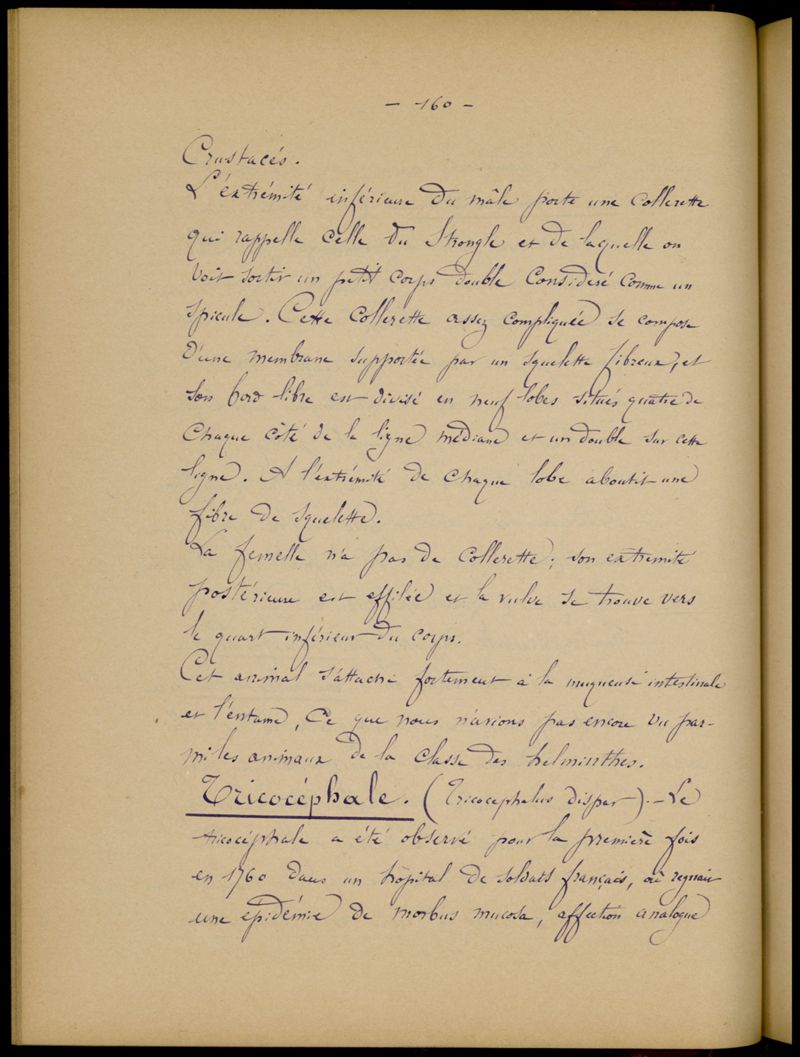 - 160 -
Crustacés.
L'extrémité inférieure du mâle porte une collerette
qui rappelle celle du Strongle et de laquelle on
voit sortir un petit corps double considéré comme un
spicule. Cette collerette assez compliquée se compose
d'une membrane supportée par un squelette fibreux, et
son bord libre est divisé en neuf lobes situés quatre de
chaque côté de la ligne médiane et un double sur cette
ligne. A l'extrémité de chaque lobe aboutit une
fibre de squelette.
La femelle n'a pas de collerette; son extrémité
postérieure est effilée et la vulve se trouve vers
le quart inférieur du corps.
Cet animal s'attache fortement à la muqueuse intestinale
et l'entame, ce que nous n'avions pas encore vu par-
mi les animaux de la classe des helminthes.
Tricocéphale. (Tricocephalus dispar). - Le
tricocéphale a été observé pour la première fois
en 1760 dans un hôpital de soldats français, où régnait
une épidémie de morbus mucosa, affection analogue